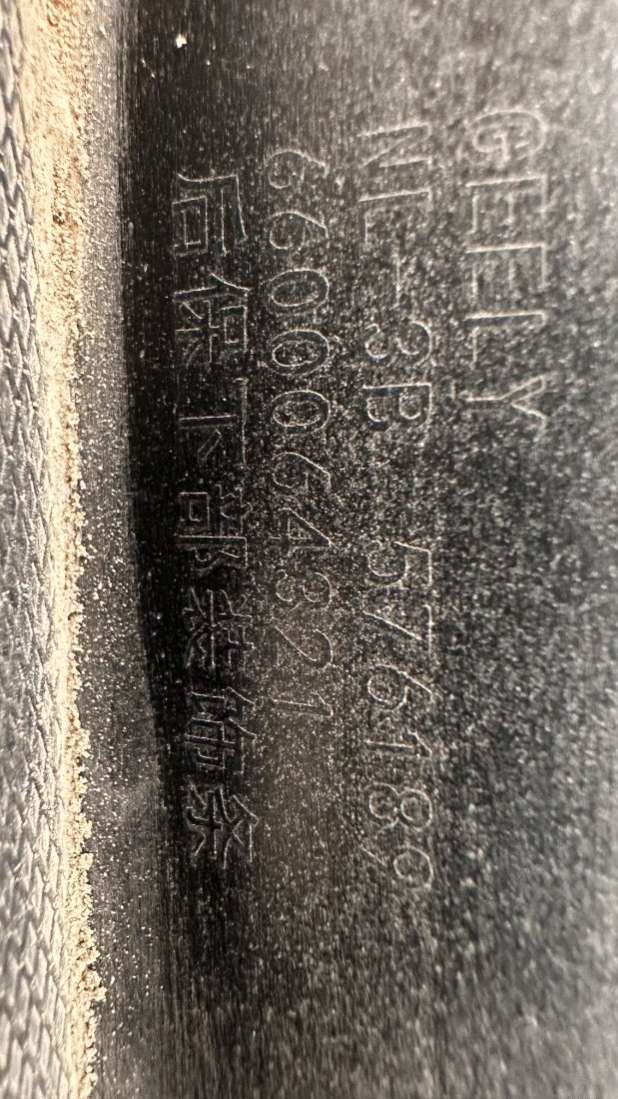 GEELY
NL-3B 576189
6600064321
后保下部装饰条